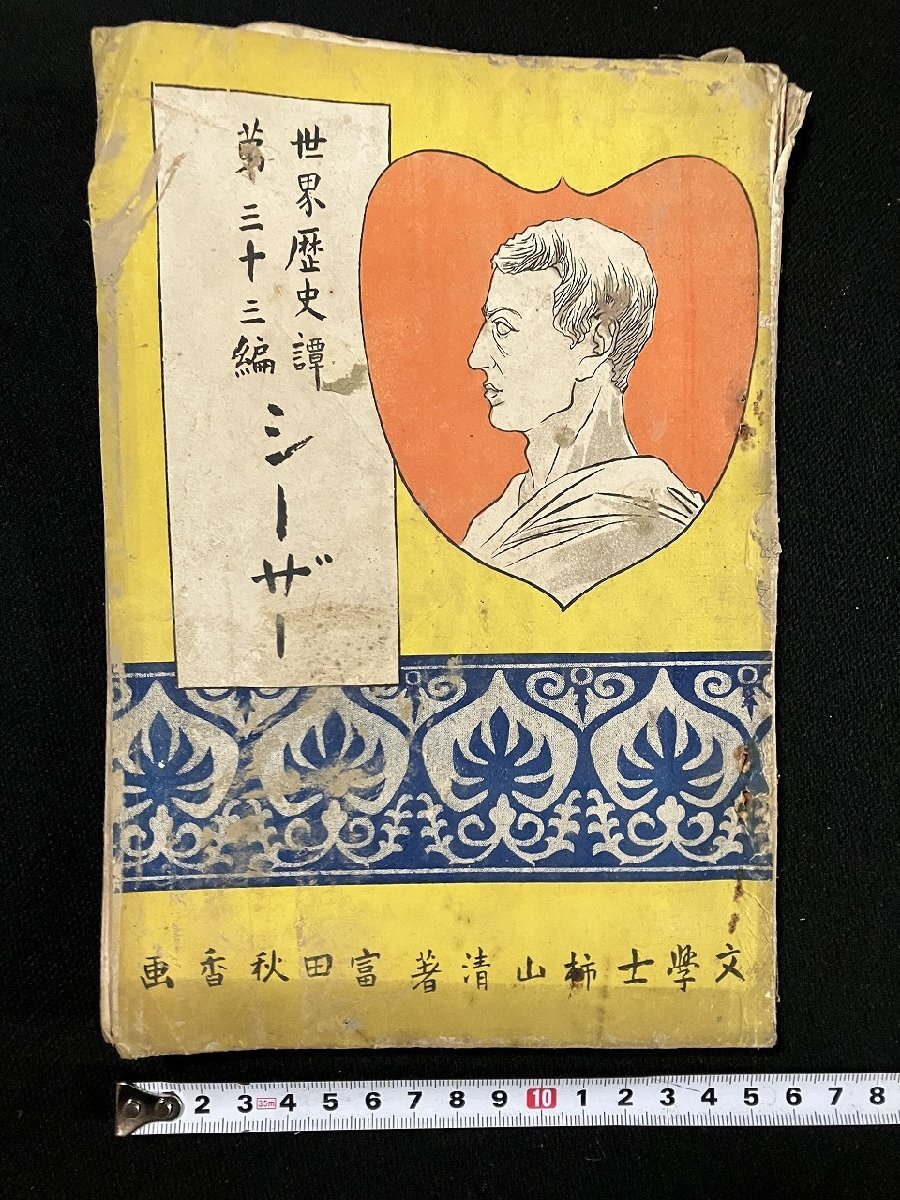 世界歴史譚
第三十三編
シーザー
文學士柿山清著 富田秋香画
2 3 35m 4 5 6 7 8 9 10 1 2 3 4 5 6 7 8